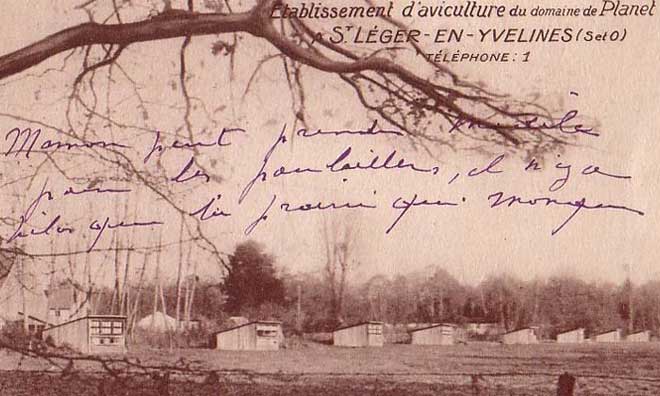 Établissement d'aviculture du domaine de Planet
A ST LÉGER-EN-YVELINES (SetO)
TÉLÉPHONE : 1
Maman peut prendre modèle
pour les poulaillers, il n'y a
plus que la prairie qui manque